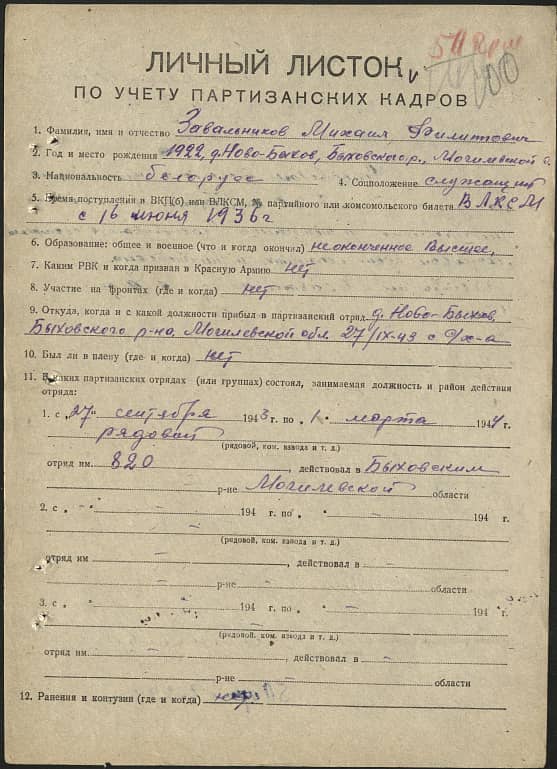 ЛИЧНЫЙ ЛИСТОК
ПО УЧЕТУ ПАРТИЗАНСКИХ КАДРОВ
1. Фамилия, имя и отчество Завальников Михаил Филиппович
2. Год и место рождения 1922, д. Ново-Быхов, Быховского р., Могилевской о.
3. Национальность белорус 4. Соцположение служащий
5. Время поступления в ВКП(б) или ВЛКСМ, № партийного или комсомольского билета ВЛКСМ
с 16 июня 1936 г
6. Образование: общее и военное (что и когда окончил) неоконченное высшее,
7. Каким РВК и когда призван в Красную Армию нет
8. Участие на фронтах (где и когда) нет
9. Откуда, когда и с какой должности прибыл в партизанский отряд д. Ново-Быхов,
Быховского р-на, Могилевской обл. 27/IX-43 с с/х-а
10. Был ли в плену (где и когда) нет
11. В каких партизанских отрядах (или группах) состоял, занимаемая должность и район действия
отряда:
1. с „27“ сентября 1943 г. по „1“ марта 1944 г.
рядовой
(рядовой, ком. взвода и т. д.)
отряд им. 820, действовал в Быховским
р-не Могилевской области
2. с „ - “ - 194 г. по „ - “ - 194 г.
-
(рядовой, ком. взвода и т. д.)
отряд им - , действовал в -
- р-не - области
3. с „ - “ - 194 г. по „ - “ - 194 г.
-
(рядовой, ком. взвода и т. д.)
отряд им. - , действовал в -
- р-не - области
12. Ранения и контузии (где и когда)